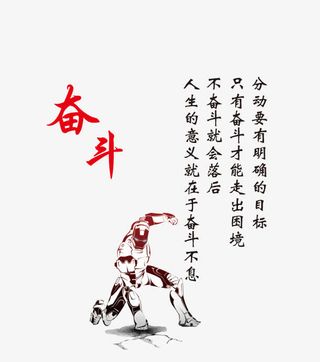 奋斗
分动要有明确的目标
只有奋斗才能走出困境
不奋斗就会落后
人生的意义就在于奋斗不息